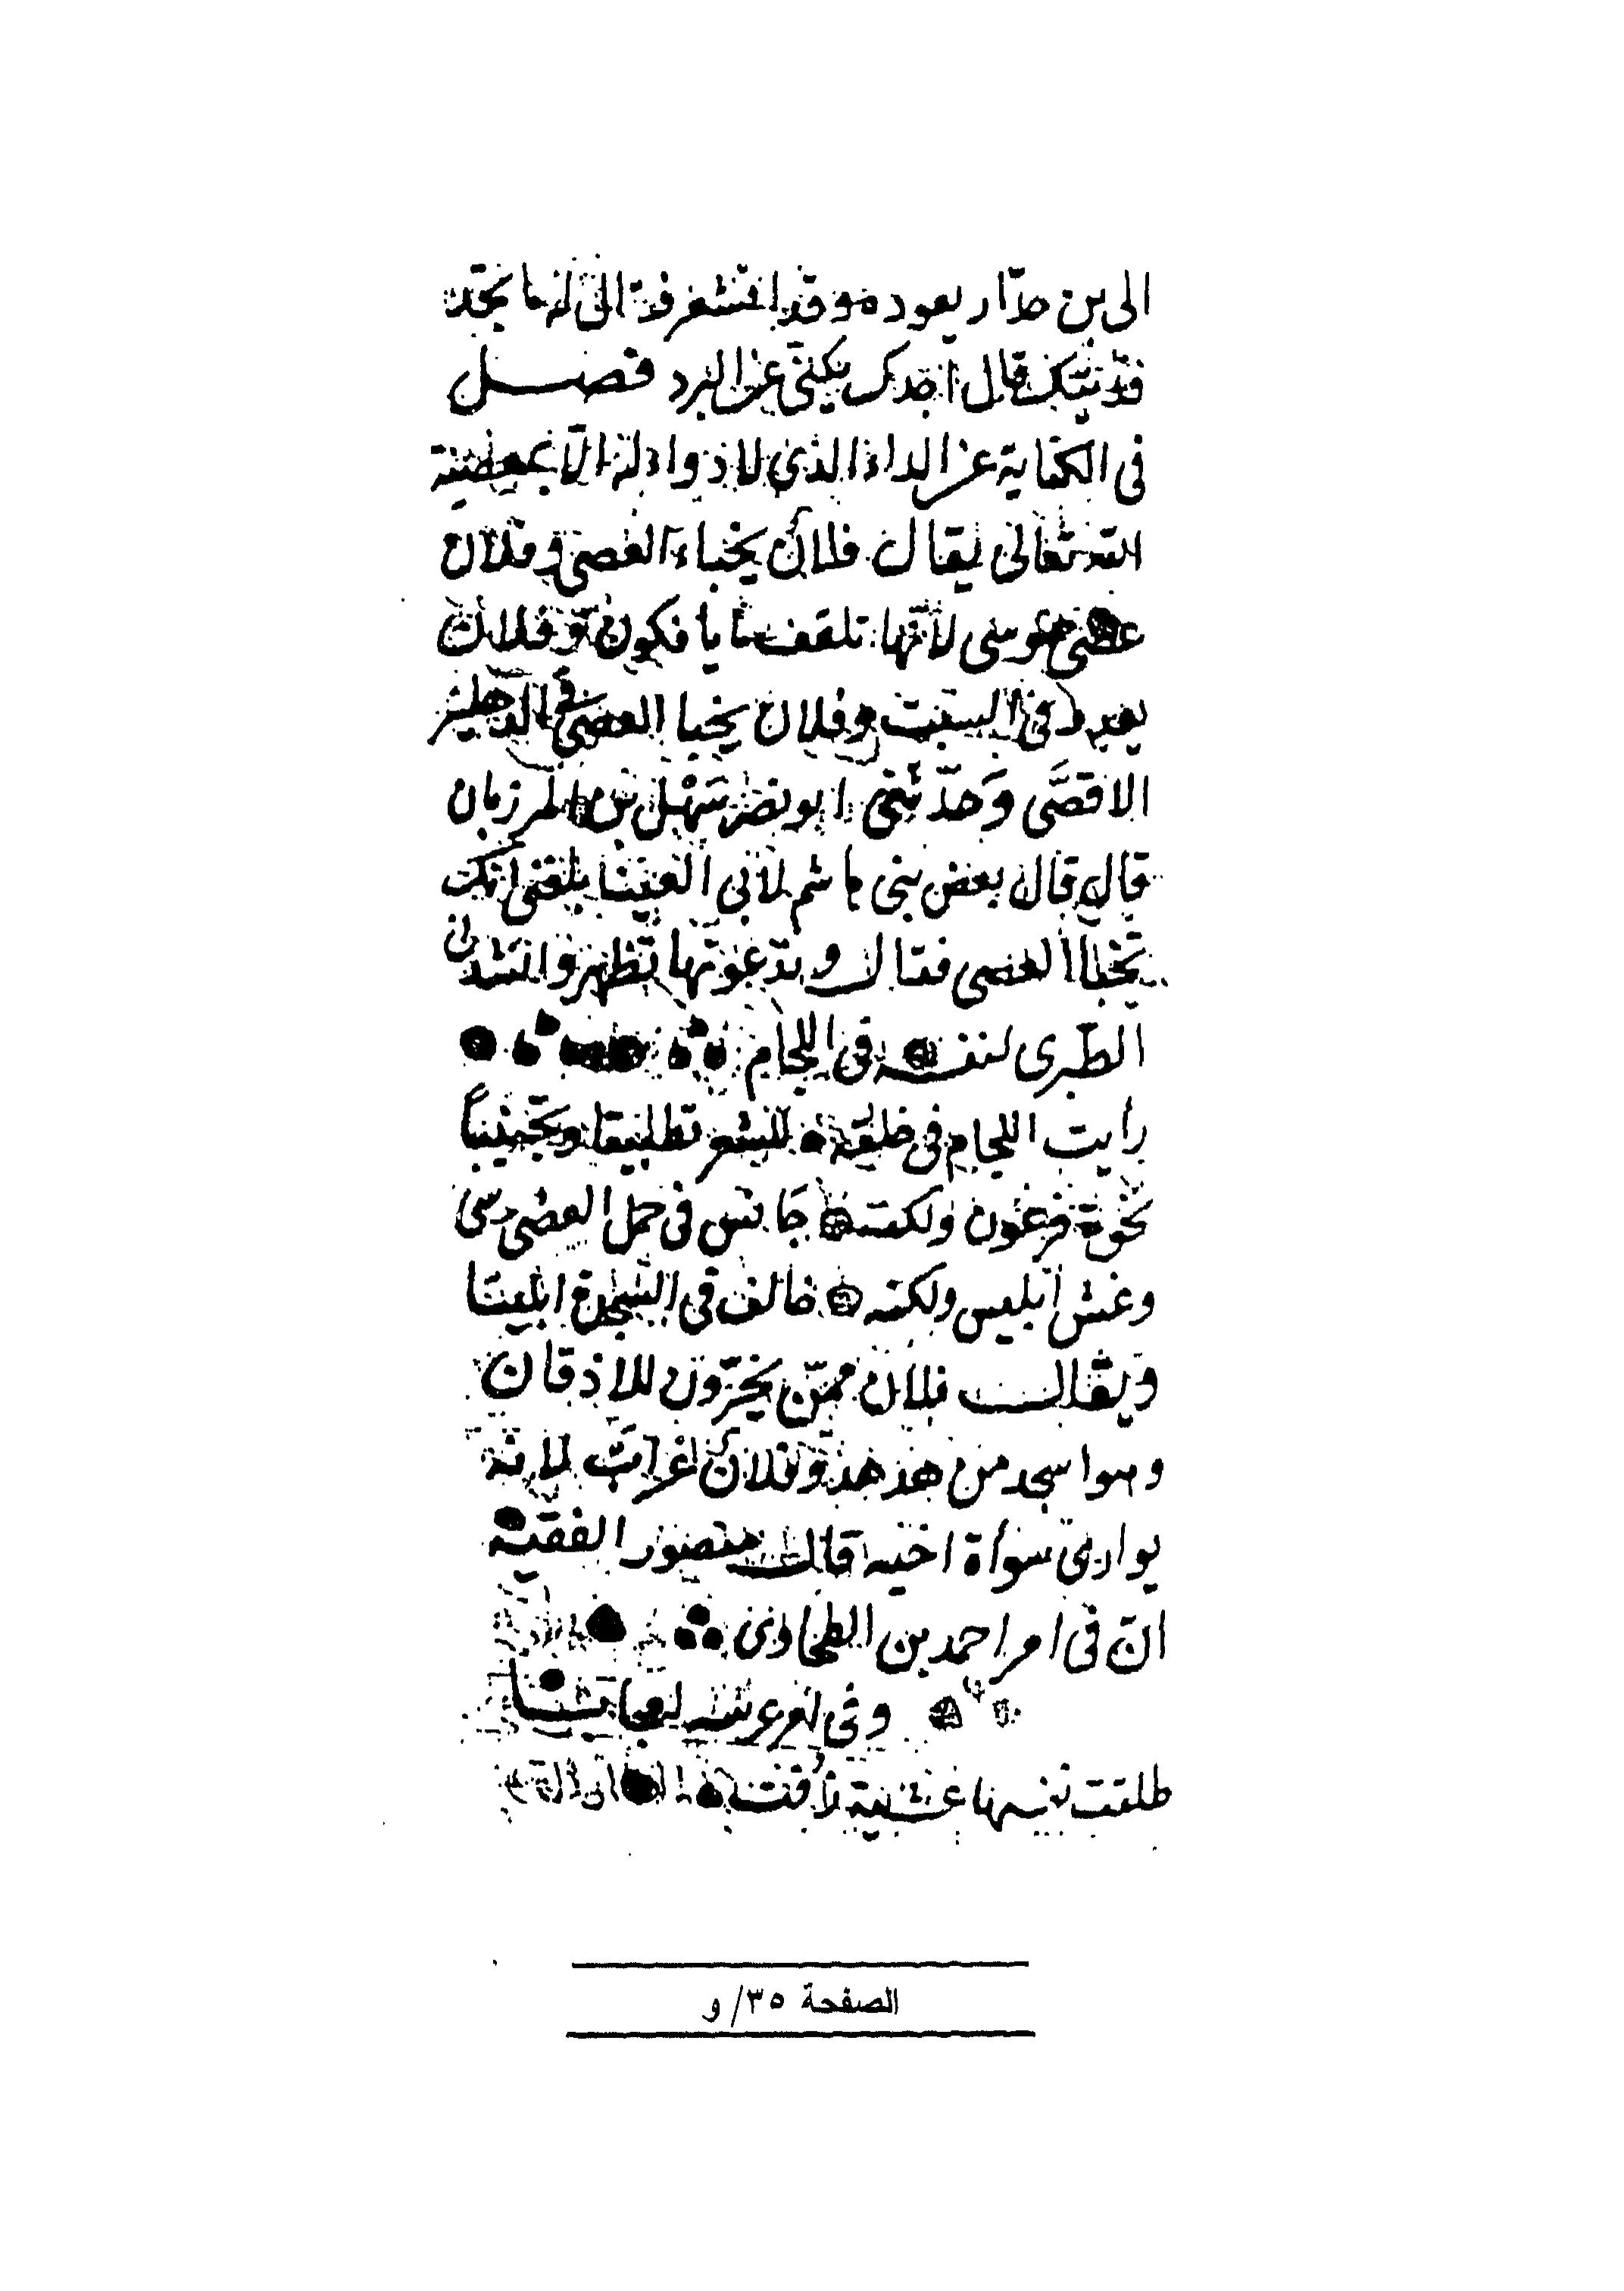 الى بن حدّار يعوده وقد اقشعر فقال له ما تجد
فديتك قال اجدك يكنى عن البرد فصل
فى الكناية عن الداء الذي لا دواء له الا بمعصية
الله تعالى يقال فلان يخباء العصى وفلان
عصى موسى لانها تلقف ما يافكون وفلان
يعدو فى السبت وفلان يخبا العصى فى الدهليز
الاقصَى وَحدّثنى ابو نصر سَهْل بن المرزبان
قال قال بعض بنى هاشم لابى العينا بلغنى انك
تخبا العصى فقال وتدعونها تظهر وانشدنى
الطبرى لنفسه فى اللجام
رايت اللجام فى خلقه للشعر تطبيقا وتجنيساً
نخوة فرعون ولكنه جَانس فى حمل العصى موسى
وغش ابليس ولكنه خالف فى السجدة ابليسا
ويقال فلان ممّن يخرّون للاذقان
وهو اسجد من هدهد وفلان غراب لانه
يوارى سوأة اخيه قال منصور الفقيه
ان فى امر احمد بن الطحاوى
وفى عرسه لعجايبنا
طلقت نفسها عشية زفت
الصفحة ٣٥/ و